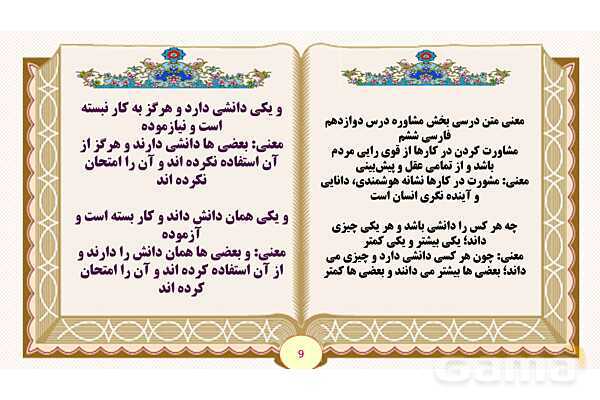 معنی متن درسی بخش مشاوره درس دوازدهم
فارسی ششم
مشاورت کردن در کارها از قوی رایی مردم
باشد و از تمامی عقل و پیش‌بینی
معنی: مشورت در کارها نشانه هوشمندی، دانایی
و آینده نگری انسان است
چه هر کس را دانشی باشد و هر یکی چیزی
داند؛ یکی بیشتر و یکی کمتر
معنی: چون هر کسی دانشی دارد و چیزی می
داند؛ بعضی ها بیشتر می دانند و بعضی ها کمتر
و یکی دانشی دارد و هرگز به کار نبسته
است و نیازموده
معنی: بعضی ها دانشی دارند و هرگز از
آن استفاده نکرده اند و آن را امتحان
نکرده اند
و یکی همان دانش داند و کار بسته است و
آزموده
معنی: و بعضی ها همان دانش را دارند و
از آن استفاده کرده اند و آن را امتحان
کرده اند
9
Gama